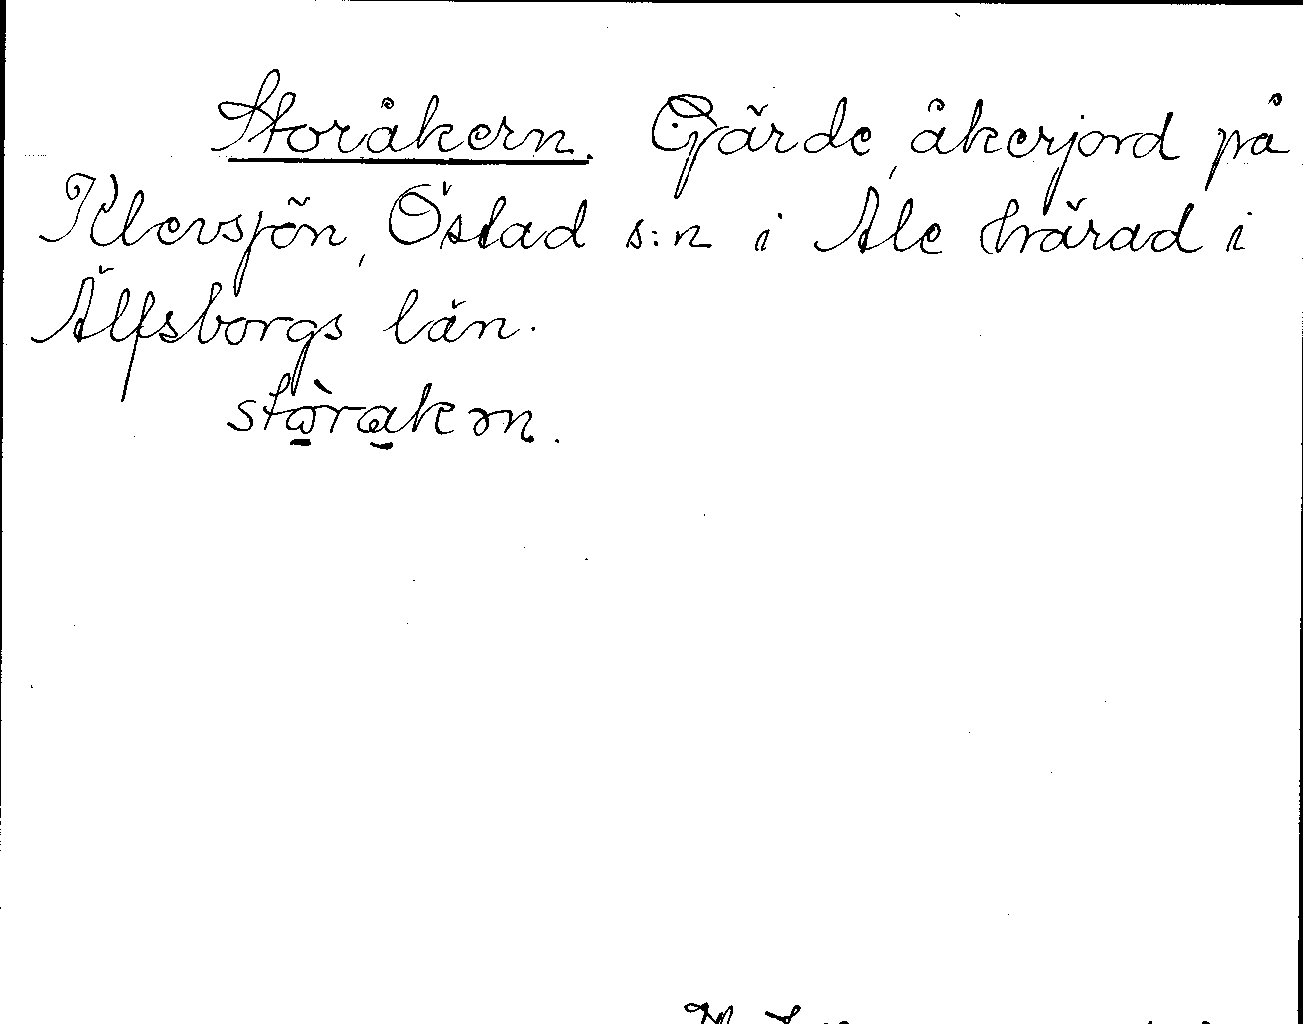 Storåkern. Gärde, åkerjord på
Klevsjön, Östad s:n i Ale härad i
Älfsborgs län.
stòrakərn.